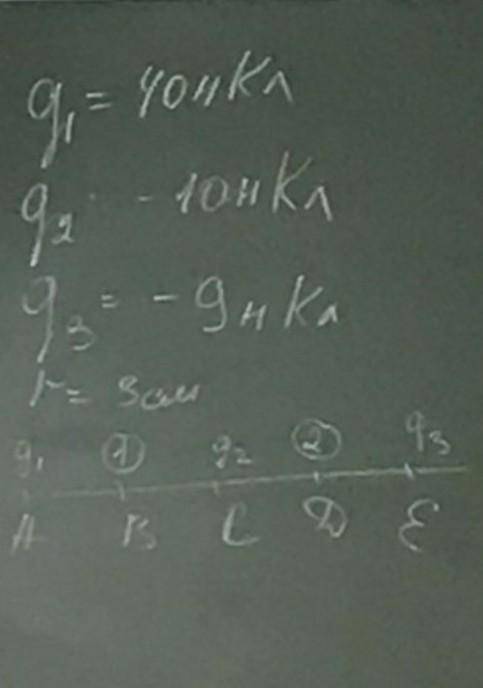 q₁ = 40нКл
q₂ - 10нКл
q₃ = - 9нКл
r = 3см
q₁ ① q₂ ② q₃
A B C D E